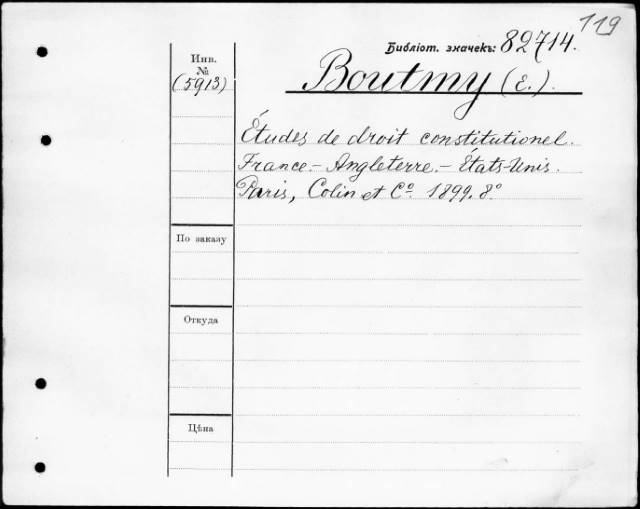 119
Библіот. значекъ: 82714.
Инв.
№
(5913)
Boutmy (E.).
Études de droit constitutionel.
France.- Angleterre.- États-Unis.
Paris, Colin et Cº. 1899. 8º
По заказу
Откуда
Цѣна